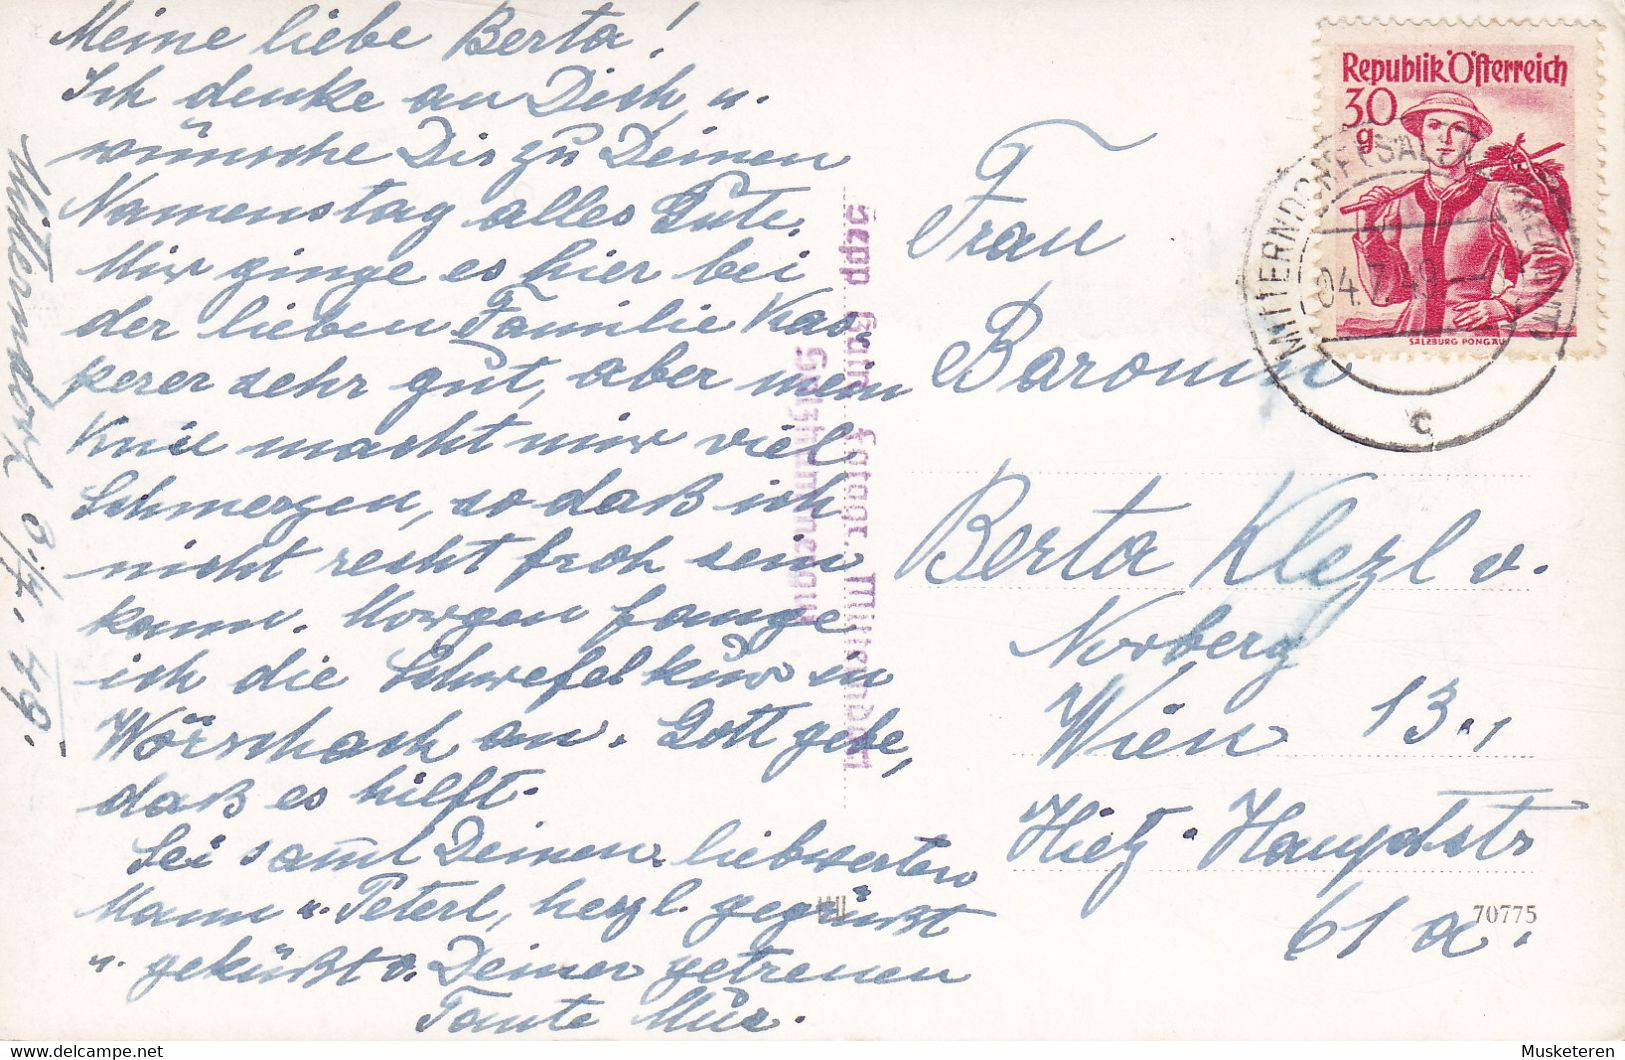 Meine liebe Berta!
Ich denke an Dich, u.
wünsche Dir zu Deinem
Namenstag alles Gute.
Mir ginge es hier bei
der lieben Familie Kas,
kerer sehr gut, aber mein
Knie macht mir viel
Schmerzen, so daß ich
nicht recht froh sein
kann. Morgen fange
ich die Schwefelkur in
Wörschach an. Gott gebe,
daß es hilft.
Sei samt Deinem liebwerten
Mann u. Peterl, herzl. gegrüßt
u. geküßt v. Deiner getreuen
Tante
Mitterndorf 3./7. 49.
Sepp
Mitterndorf
Salzkammergut
Republik Österreich
30
g
SALZBURG PONGAU
MITTERNDORF (SALZKAMMERGUT)
04.7.49
c
Frau
Baronin
Berta Klezl v.
Norberg
Wien 13.,
Hietz. Hauptstr
61 a.
70775
Musketeren
delcampe.net